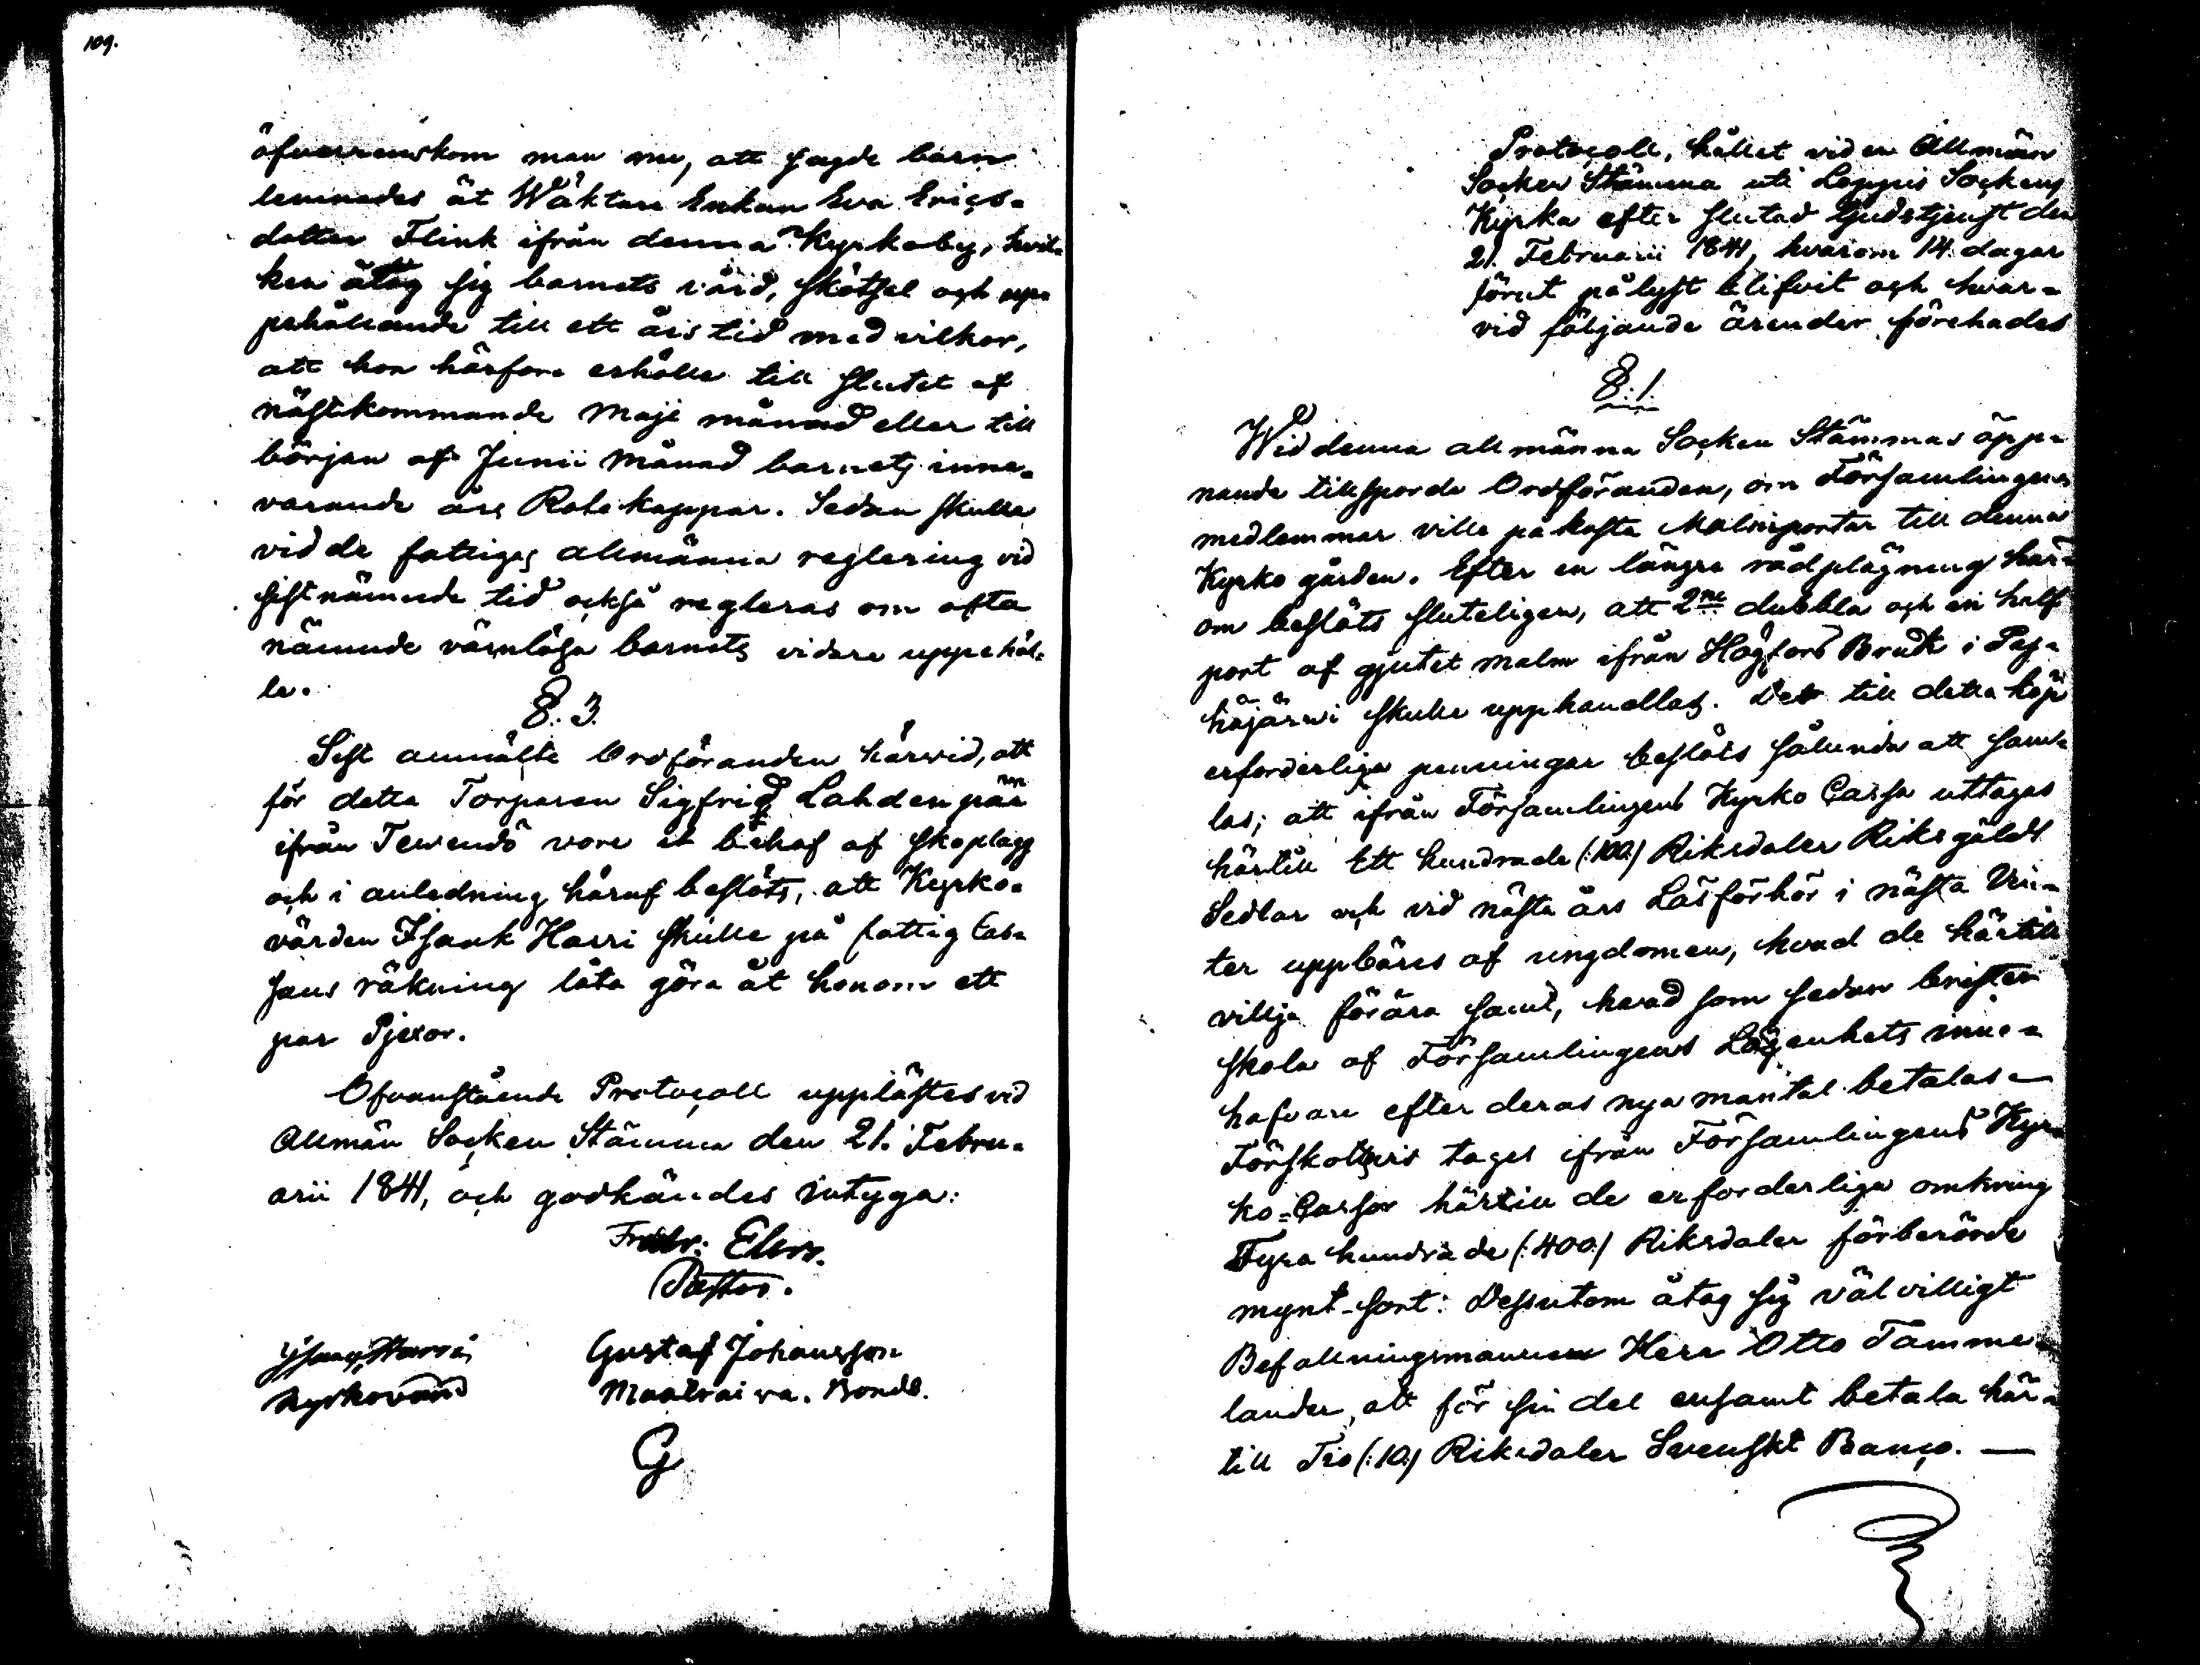 109.
öfverenskom man nu, att sagde barn
lemnades åt Wäktare Enkan Eva Erics-
dotter Flink ifrån denna Kyrkoby, hvil-
ken åtog sig barnets vård, skötsel och upp-
pehållande till ett års tid med vilkor,
att hon härföre erhölle till slutet af
nästkommande Maji månad eller till
början af Junii Månad barnets inne-
varande års Rotekappar. Sedan skulle
vid de fattigas allmänna reglering vid
sistnämnde tid också regleras om ofta
nämnde värnlösa barnets vidare uppehäl-
le.
§. 3.
Sist anmälte Ordföranden härvid, att
för detta Torparen Sigfrid Lahdenpää
ifrån Tervendö vore et behof af skoplagg
och i anledning häraf beslöts, att Kyrko-
värden Isaak Harri skulle på fattig Cas-
sans räkning låta göra åt honom ett
par Pjexor.
Ofvanstående Protocoll upplästes vid
Allmän Socken Stämma den 21. Febru-
arii 1841, och godkändes intyga:
Fredr: Elers.
Pastor.
Isaac Harri Gustaf Johansson
Kyrkovärd Maatrai va. Bonde.
G
Protocoll, hållet vid en Allmän
Socken Stämma uti Loppis Sockens
Kyrka efter slutad Gudstjenst den
21. Februarii 1841, hvarom 14 dagar
förut pålyst blifvit och hvar-
vid följande ärender förehades
§. 1.
Wid denna allmänna Socken Stämmas öpp-
nande tillsporde Ordföranden, om Församlingens
medlemmar ville påkosta Malmportar till denna
Kyrko gården. Efter en längre rådplägning här-
om beslöts sluteligen, att 2ne dubbla och en half
port af gjutet malm ifrån Högfors Bruk i Pyh-
häjärvi skulle upphandlas. De till detta köp
erforderliga penningar beslöts sålunda att sam-
las; att ifrån Församlingens Kyrko Cassa uttages
härtill Ett hundrade (:100:) Riksdaler Riksgälds
Sedlar och vid nästa års Läsförhör i nästa Vin-
ter uppbäres af ungdomen, hvad de härtill
villja förära samt, hvad som sedan brister
skola af Församlingens Lägenhets inne-
hafvare efter deras nya mantal betalas.
Förskottsvis tages ifrån Församlingens Kyr-
ko=Cassor härtill de erforderliga omkring
Fyra hundrade (:400:) Riksdaler förberörde
mynt-sort: Dessutom åtog sig välvilligt
Befallningsmannen Herr Otto Tamme-
lander, att för sin del ensamt betala här-
till Tio (:10:) Riksdaler Svenskt Banco.